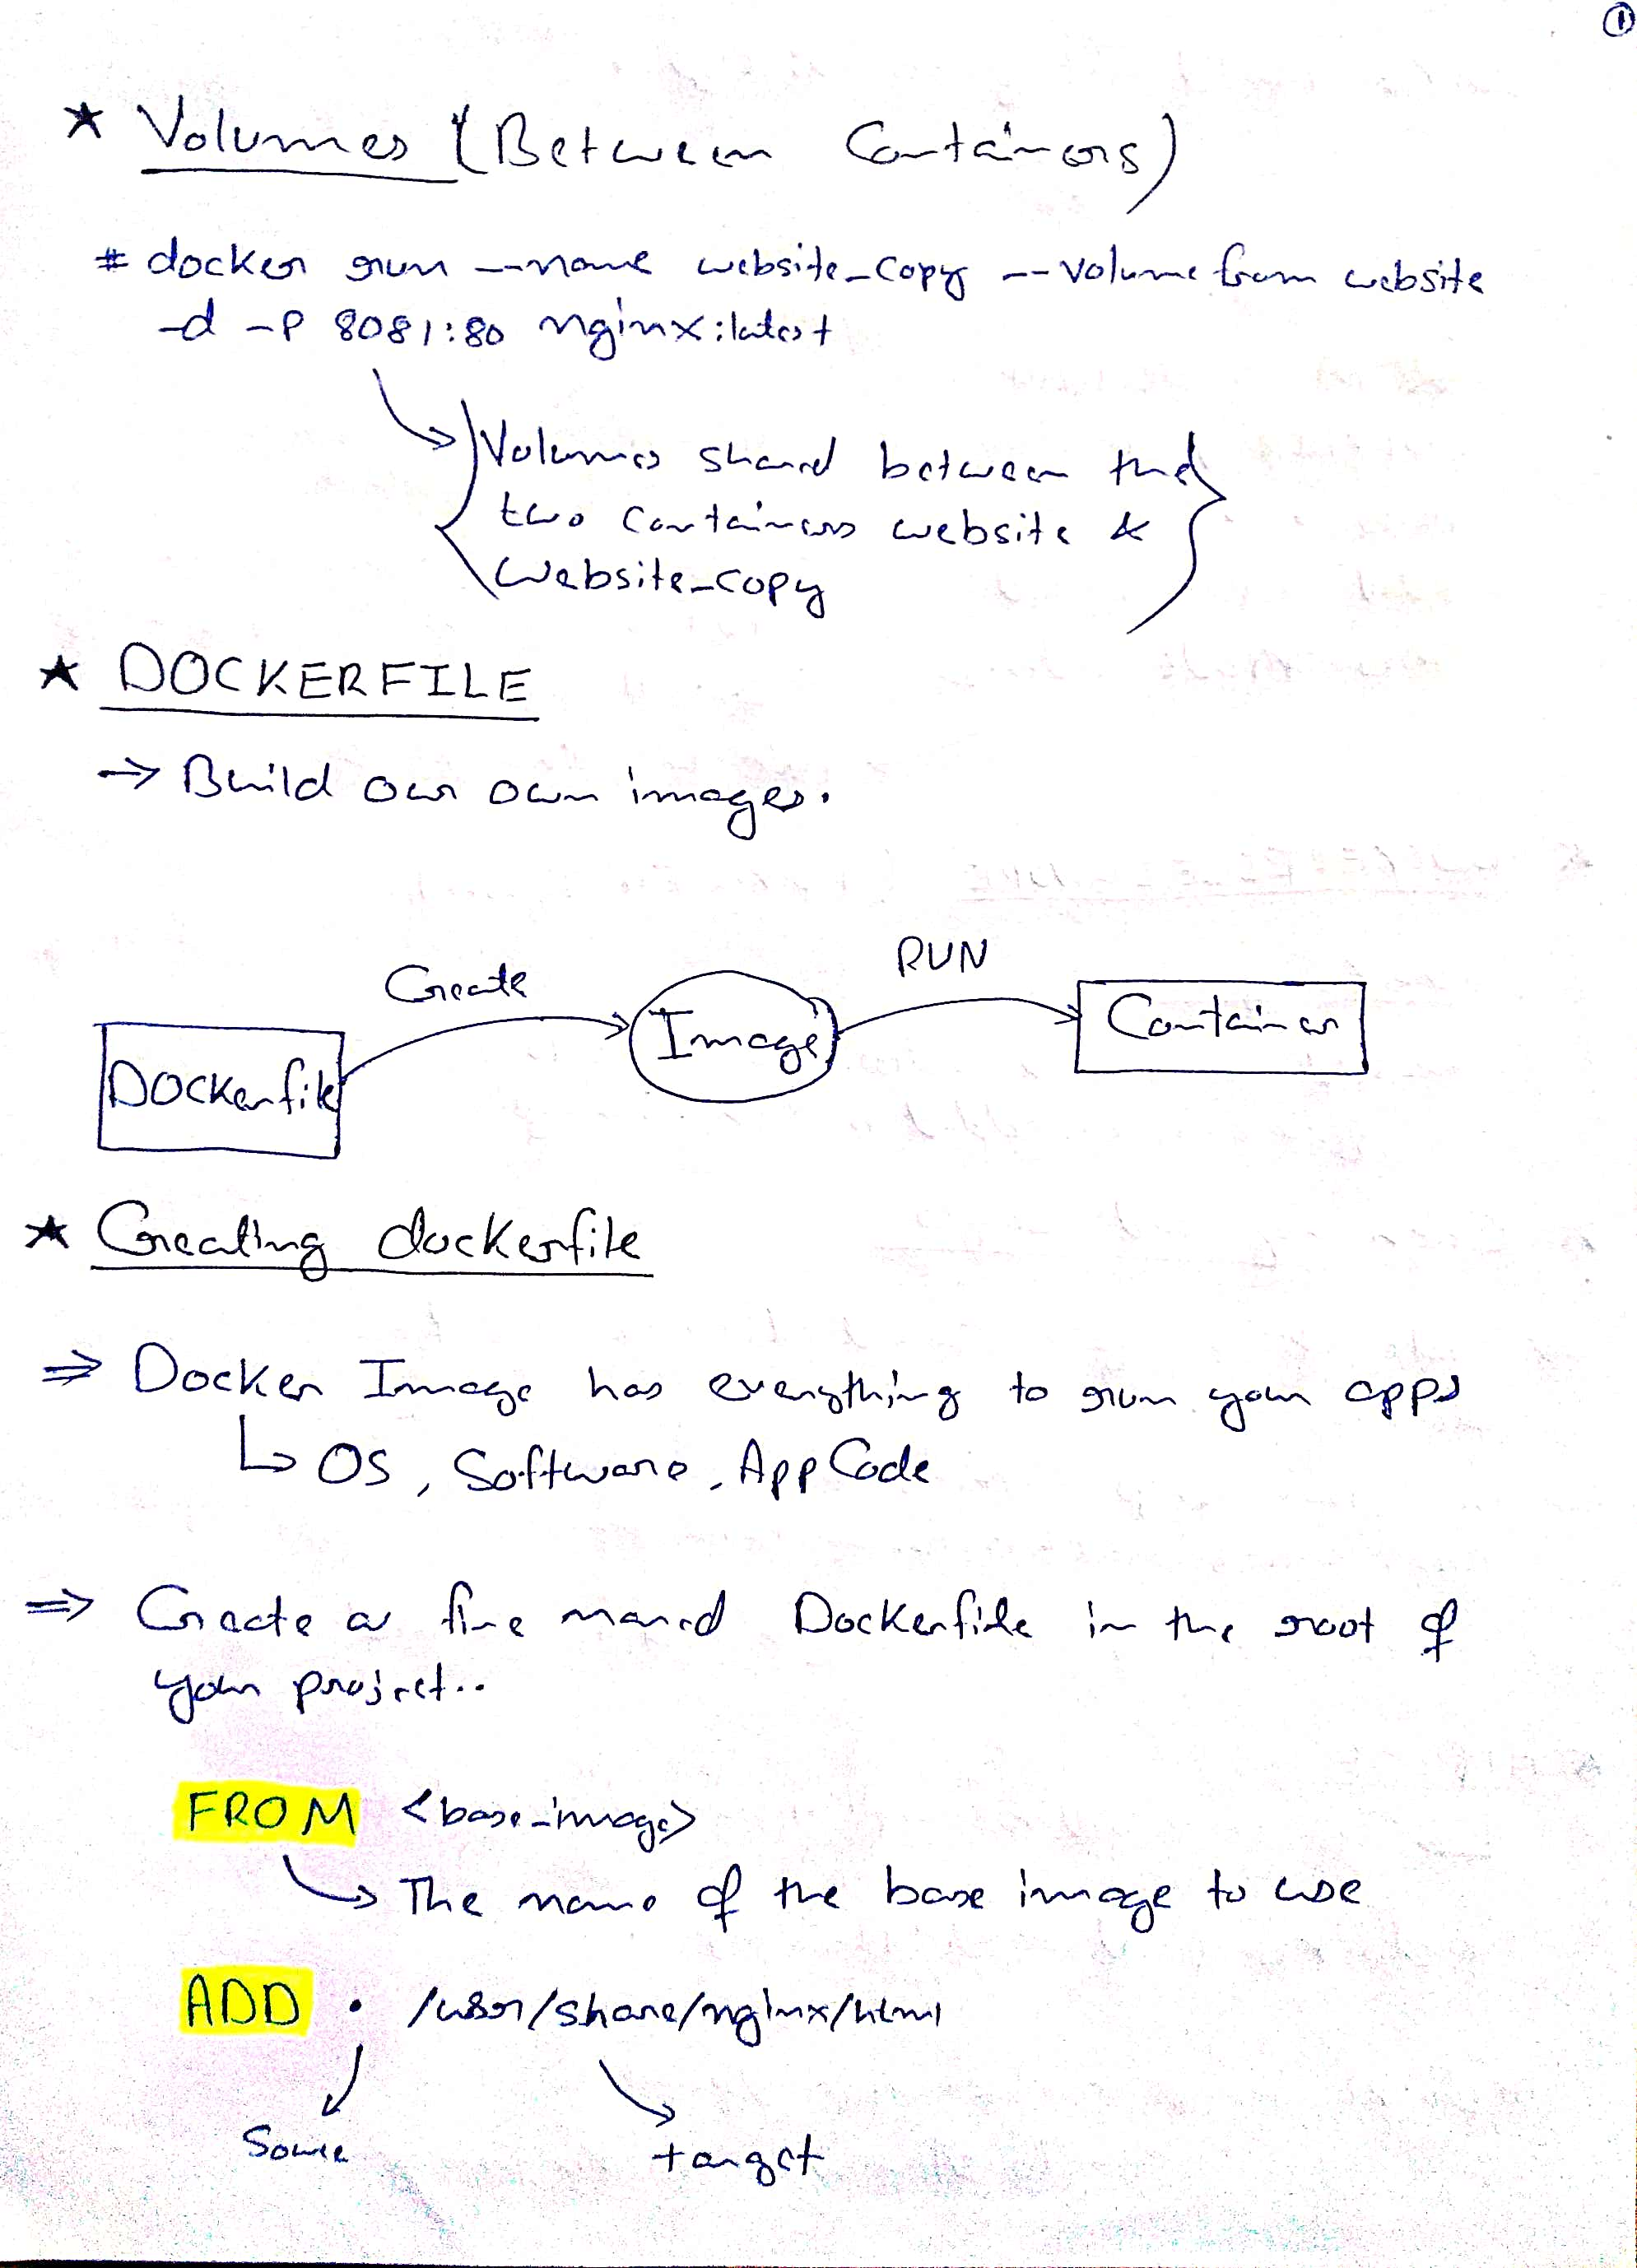 1
★ Volumes (Between Containers)
# docker run --name website_copy --volume from website
-d -p 8081:80 nginx:latest
Volumes shared between the
two containers website &
website_copy
★ DOCKERFILE
→ Build our own images.
Create
RUN
Dockerfile
Image
Container
★ Creating dockerfile
⇒ Docker Image has everything to run your apps
↳ OS, Software, App Code
⇒ Create a fine named Dockerfile in the root of
your project..
FROM <base-image>
→ The name of the base image to use
ADD . /usr/share/nginx/html
Source
target